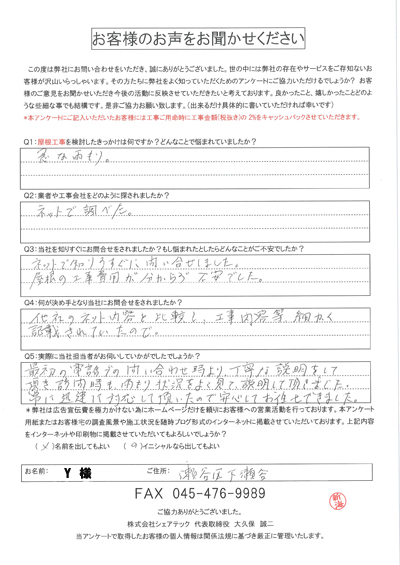 お客様のお声をお聞かせください
この度は弊社にお問い合わせをいただき、誠にありがとうございました。世の中には弊社の存在やサービスをご存知ないお
客様が沢山いらっしゃいます。その方たちに弊社をよく知っていただくためのアンケートにご協力いただけるでしょうか? お客
様のご意見をお聞かせいただき今後の活動に反映させていただきたいと考えております。良かったこと、嬉しかったことどのよ
うな些細な事でも結構です。是非ご協力お願い致します。(出来るだけ具体的に書いていただければ幸いです)
*本アンケートにご記入いただいたお客様には工事ご用命時に工事金額(税抜き)の 2%をキャッシュバックさせていただきます。
Q1:屋根工事を検討したきっかけは何ですか?どんなことで悩まれていましたか?
急な雨もり。
Q2:業者や工事会社をどのように探されましたか?
ネットで調べた。
Q3:当社を知りすぐにお問合せをされましたか?もし悩まれたとしたらどんなことがご不安でしたか?
ネットで知りすぐに問い合せしました。
屋根の工事費用が分からず不安でした。
Q4:何が決め手となり当社にお問合せをされましたか?
他社のネット内容と比較し、工事内容等細かく
記載されていたので。
Q5:実際に当社担当者がお伺いしていかがでしたでしょうか?
最初の電話での問い合わせ時より、丁寧な説明をして
頂き訪問時も、雨もり状況をよく見て、説明して頂きました。
常に迅速に対応して頂いたので安心してお任せできました。
*弊社は広告宣伝費を極力かけない為にホームページだけを頼りにお客様への営業活動を行っております。本アンケート
用紙またはお客様宅の調査風景や施工状況を随時ブログ形式のインターネットに掲載させていただいております。上記内容
をインターネットや印刷物に掲載させていただいてもよろしいでしょうか?
( )名前を出してもよい ( )イニシャルなら出してもよい
お名前: Y 様 ご住所: 瀬谷区下瀬谷
FAX 045-476-9989
ご協力ありがとうございました。
株式会社シェアテック 代表取締役 大久保 誠二
当アンケートで取得したお客様の個人情報は関係法規に基づき厳正に管理いたします。